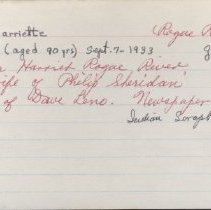 arriette Rogue R
(aged 90 yrs) Sept. 7 - 1933 g
Harriet Rogue River
ife of Philip Sheridan
of Dave Leno. Newspaper
Indian Scrapb